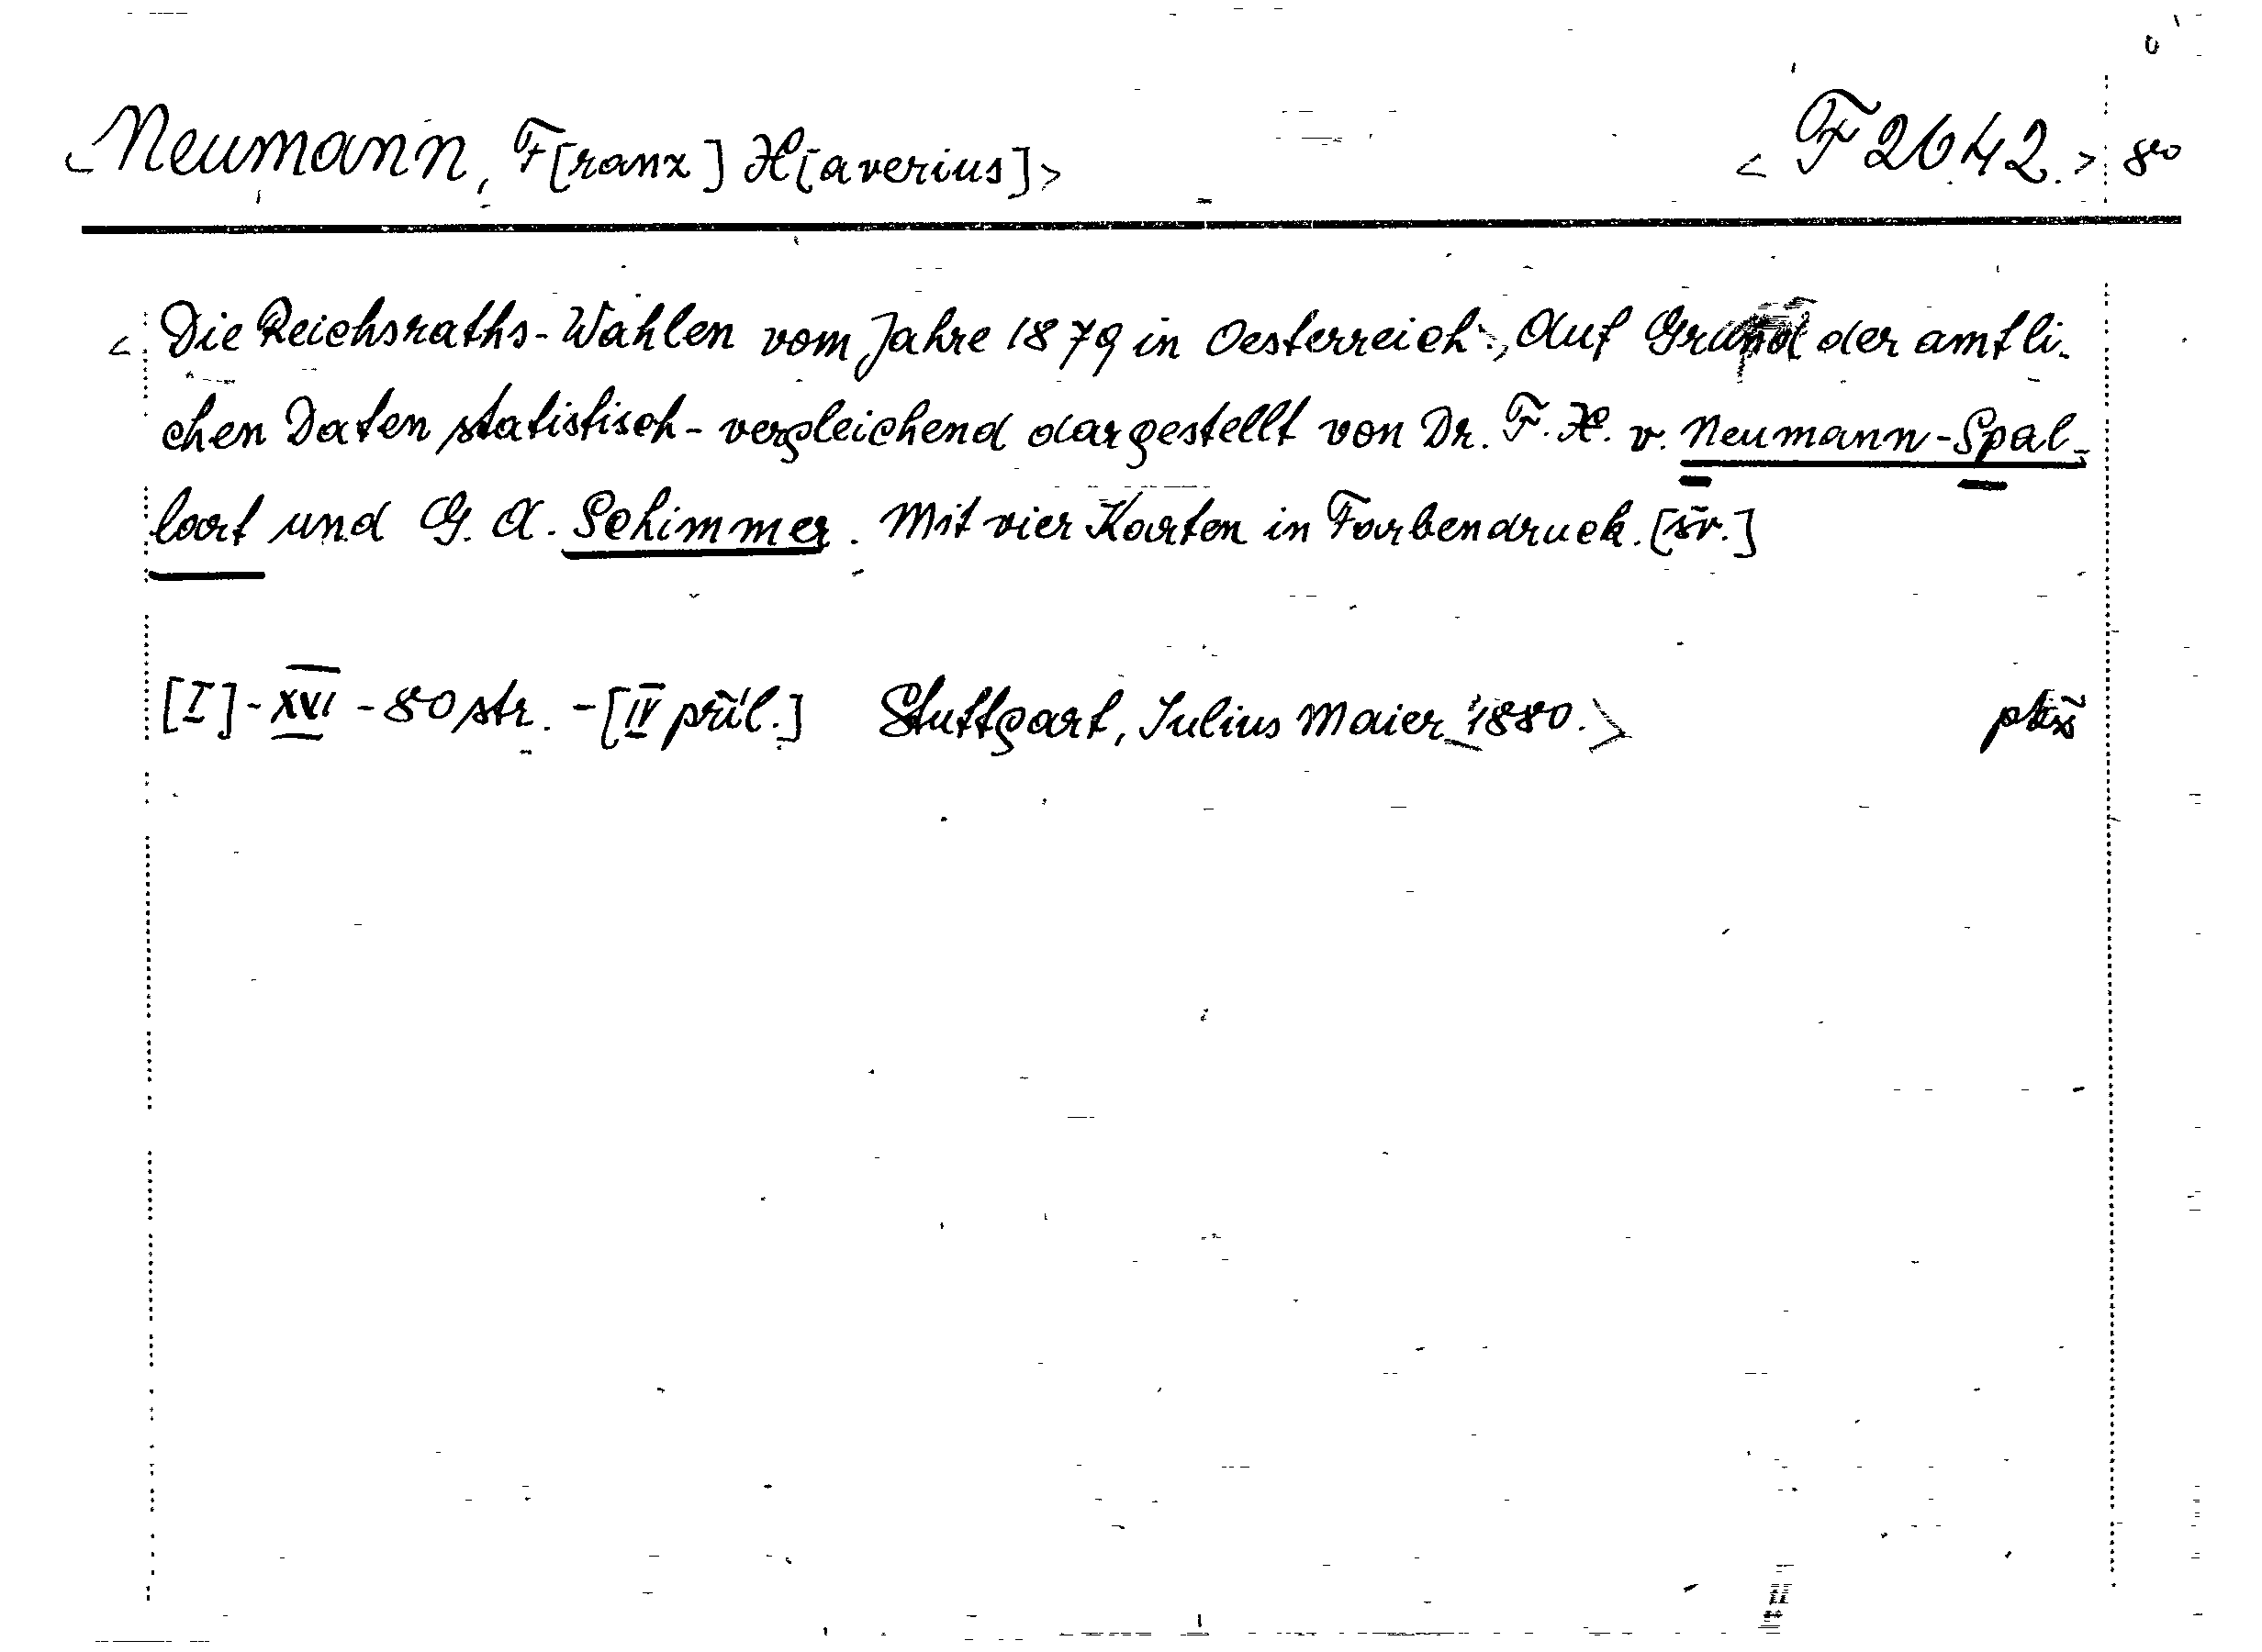 <Neumann, F[ranx] X[averius]> <F 2642.> 8o
<Die Reichsraths-Wahlen vom Jahre 1879 in Oesterreich:, Auf Grund der amtli-
chen Daten statistisch-vergleichend dargestellt von Dr. F. X. v. Neumann-Spal-
lart und G. A. Schimmer. Mit vier Karten in Farbendruck. [šv.]
[I]-XVI-80 str. -[IV příl.] Stuttgart, Julius Maier 1880.>